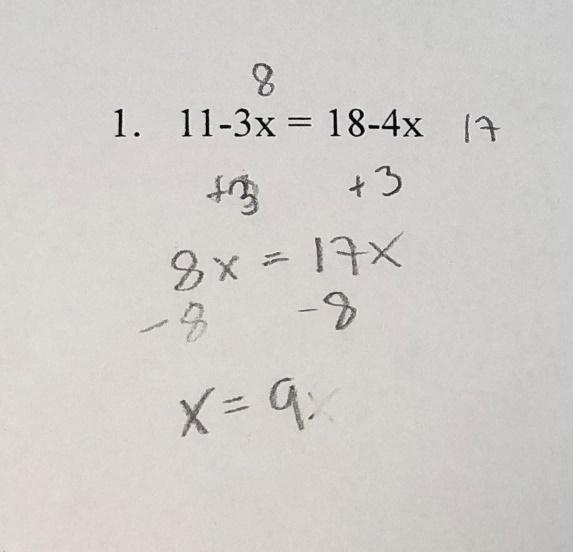 8
1. 11-3x = 18-4x 17
+3 +3
8x = 17x
-8 -8
x = 9x